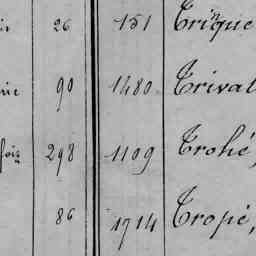 26 151 Trinque
90 1480 Trival
298 1109 Trohé,
86 1714 Tropé,